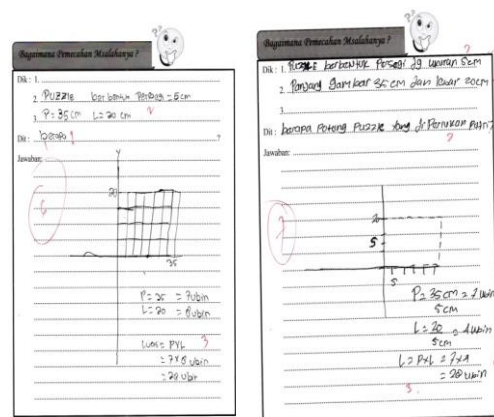 Bagaimana Pemecahan Msalahanya ?
Dik : 1.
2. PUZZLE berbentuk Persegi = 5 cm
3. P = 35 cm L = 20 cm 2
Dit : berapa 1 ?
Jawaban:
6
Y
20
35
P = 35 = 7 ubin
L = 20 = ubin
Luas = PXL 3
= 7 x ubin
= 28 ubin
Bagaimana Pemecahan Msalahanya ?
Dik : 1. PUZZLE berbentuk Persegi dg ukuran 5cm
2. Panjang Gambar 35 cm dan lebar 20cm
3.
Dit : berapa Potong Puzzle yang di Perlukan Putri?
Jawaban:
20
5
5
P = 35 cm = 7 ubin
5 cm
L = 20 = 4 ubin
5 cm
L = PxL = 7x4
= 28 ubin
3